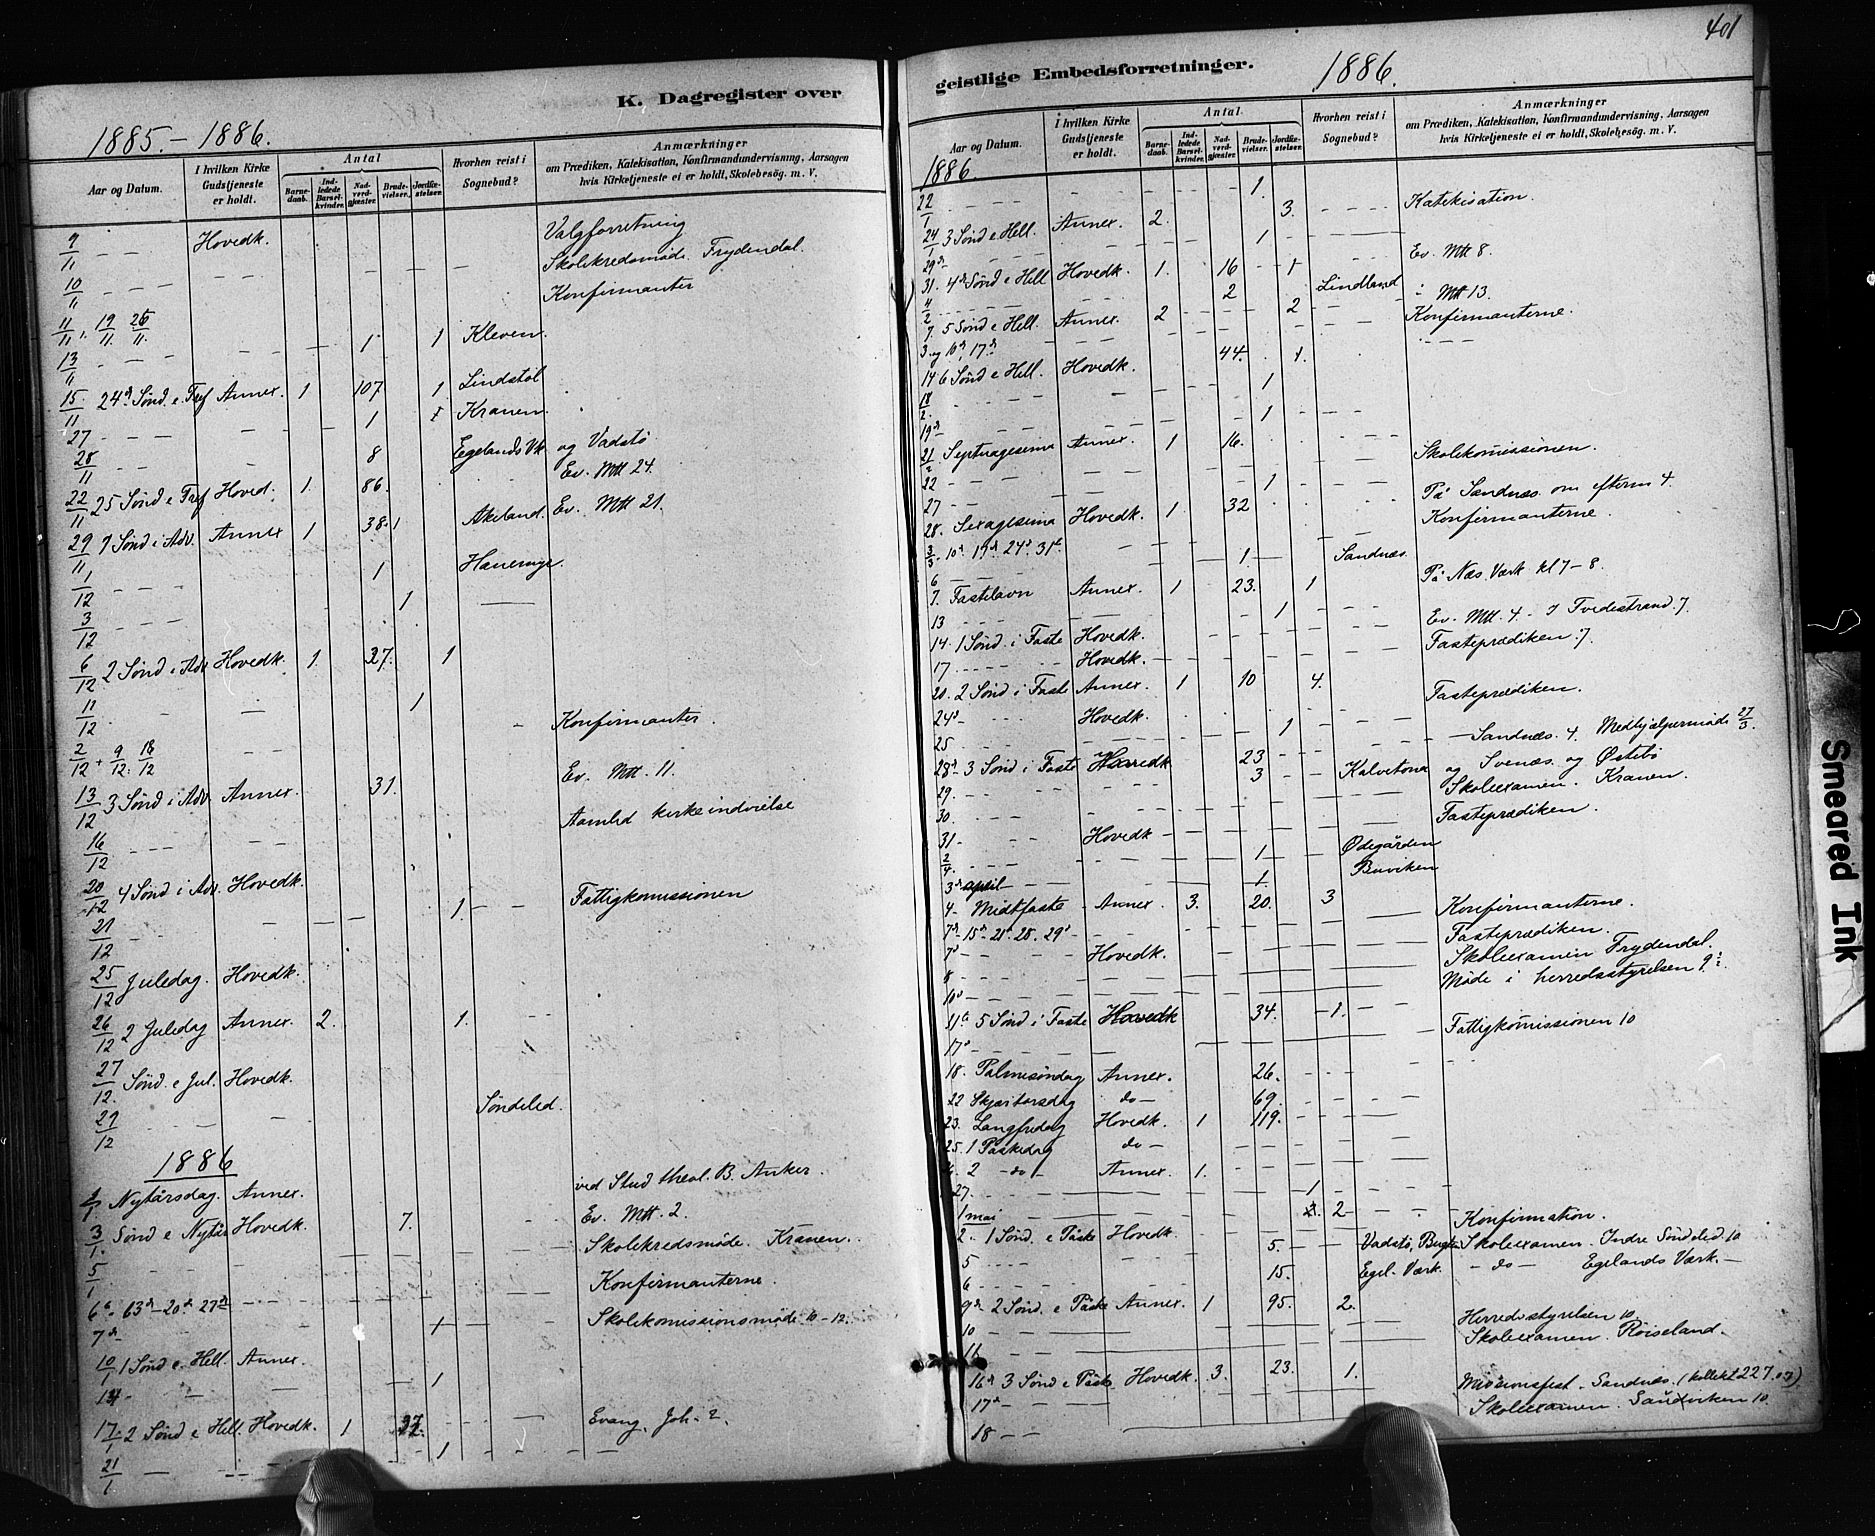 K. Dagregister over
1885.-1886.
Aar og Datum.
I hvilken Kirke Gudstjeneste er holdt.
Antal
Barnedaab.
Indledede Barselkvinder.
Nadverdgjæster.
Brudevielser.
Jordfæstelser.
Hvorhen reist i Sognebud?
Anmærkninger
om Prædiken, Katekisation, Konfirmandundervisning, Aarsagen
hvis Kirketjeneste ei er holdt, Skolebesøg. m. V.
9/11 Hovedk. Valgforretning
— — — Skolekredsmøde. Frydendal.
10/11 — — — Konfirmanter
11/11, 19/11 26/11
13/11 — — — 1 1 Kleven.
15/11 24d Sønd. e. Tref Annex. 1 107 1 Lindstøl
27 — — — 1 Kranen.
28/11 — — 8 Egelands Vk. og Vadstø
22/11 25 Sønd e Tref Hoved. 1. 86. Ev. Mtt 24.
29/11 1 Sønd i Adv. Annex 1 38. 1 Akeland. Ev. Mtt 21.
1/12 — — — 1 Haneinge.
3/12 — — — 1 —
6/12 2 Sønd i Adv Hovedk. 1. 37. 1
11/12 — — 1
2/12 + 9/12. 18/12 Konfirmanter.
13/12 3 Sønd i Adv Annex. 31. Ev. Mtt. 11.
16/12 — — — Aamlid kirkeindvielse
20/12 4 Sønd i Adv. Hovedk.
21/12 — — 1 — — Fattigkomissionen
25/12 Juledag. Hovedk.
26/12 2 Juledag Annex. 2. 1. — —
27/12 Sønd. e Jul. Hovedk.
29/12 — — — Søndeled.
1886
1/1 Nytårsdag. Annex. ved Stud theol. B. Anker.
3/1 Sønd e Nytår Hovedk. 7. Ev. Mtt. 2.
5/1 — — — Skolekredsmøde. Kranen.
6 — 13d — 20d 27d — — Konfirmanterne.
7d — — 1 — — Skolekomissionsmøde 10-12.
10/1 1 Sønd e. Hell. Annex.
14 — — 1
17/1 2 Sønd e Hell. Hovedk. 1 37. Evang. Joh. 2.
21/1 — — — 1 — —
401
geistlige Embedsforretninger.
1886.
Aar og Datum.
I hvilken Kirke Gudstjeneste er holdt.
Antal.
Barnedaab.
Indledede Barselkvinder.
Nadverdgjæster.
Brudevielser.
Jordfæstelser.
Hvorhen reist i Sognebud?
Anmærkninger
om Prædiken, Katekisation, Konfirmandundervisning, Aarsagen
hvis Kirketjeneste ei er holdt, Skolebesøg. m. V.
1886.
22/1 — — — 1.
24/1 3 Sønd e Hell. Annex. 2. 3. — — — Katekisation.
29d — — — 1 — — —
31. 4d Sønd e Hell Hovedk. 1. 16 1 Ev. Mtt 8.
4/2 — — — 2 Lindland
7. 5 Sønd e Hell. Annex. 2 2 — — Mtt 13.
3 og 10d, 17d — — Konfirmanterne.
14 6 Sønd e Hell. Hovedk. 44. 1. — — —
18/2. — — — 1
19d — — — 1 — — —
21/2 Septuagesima Annex. 1 16.
22 — — — Skolekomissionen.
27 — — 1
28. Sexagesima Hovedk. 1 32 På Sandnæs. om efterm 4.
3/3. 10d. 17d 24d 31d. — Konfirmanterne.
6 — — 1. — Sandnæs.
7. Fastelavn Annex. 1 23. 1 På Næs. Værk kl 7-8.
13 — — — 1 — — —
14. 1 Sønd. i Faste Hovedk. — — Ev. Mtt. 4.
17 — — Hovedk. — Fasteprædiken.
20. 2 Sønd i Faste Annex. 1 10 4.
24d — Hovedk. Fasteprædiken.
25 — — — 1 — — —
28d — 3 Sønd i Faste Hovedk 23 — — — Sandnæs. 4. Medhjælpermøde 27/3.
29. — — — 3 — — Kalvetona og Svenæs. og Østebø
30. — — — Skoleexamen. Kranen.
31 — Hovedk — — Fasteprædiken.
2/4. — — — 1 Ødegården
3d april — — 1. Buviken
4 — Midtfaste Annex. 3. 20. 3
7d — 15d — 21d. 28. 29d — — Konfirmanterne.
7d — — Hovedk. — Fasteprædiken.
8 — — — Skoleexamen Frydendal.
10d — — — Møde i herredsstyrelsen 9.
11d 5 Sønd i Faste Hovedk 34. — 1. —
17d — — — Fattigkomissionen 10
18. Palmesøndag Annex. 26.
22 Skjærtorsdag do — 69.
23. Langfredag Hovedk. 1 119.
25. 1 Paaskedag do —
2 — do — Annex. 1.
27. — — — 1 — — —
1 mai — — — 2 —
2. 1 Sønd. e Påske Hovedk. Konfirmation.
5 — — — 5. — — Vadstø, Skoleexamen. Indre Søndeled. 10
6 — — — 15. Egel. Værk. — do — Egelands Værk. —
9d — 2 Sønd. e Påske Annex. 1 95. 2.
10 — — — Herredsstyrelsen 10
11 — — — Skoleexamen. Røiseland.
16d 3 Sønd e Påske Hovedk. 3. 23. 1.
17d — — — Missionsfest. Sandnæs. (kollekt 227.07)
18 — — Skoleexamen. Sandviken 10
Smeared Ink